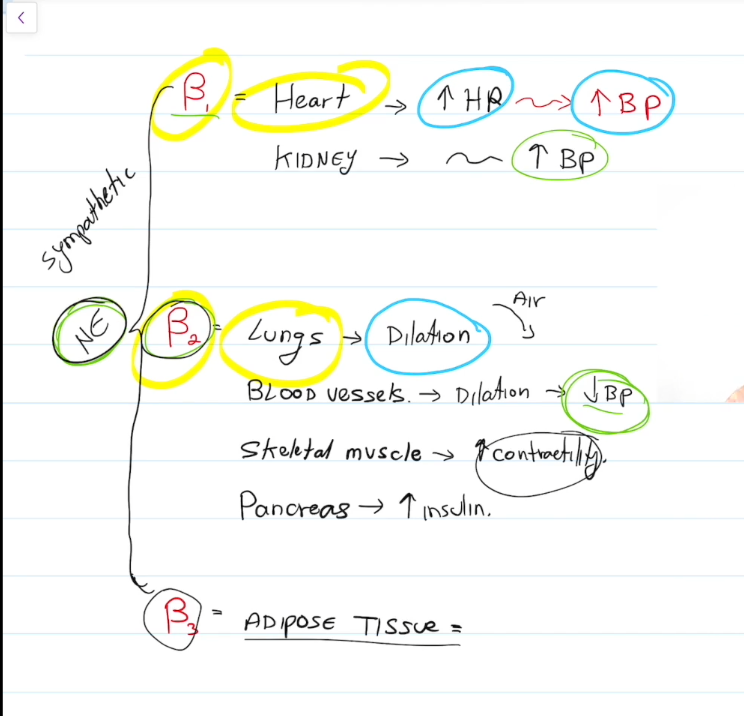 β1 = Heart → ↑ HR → ↑ BP
KIDNEY → ↑ BP
sympathetic
Air
NE β2 = Lungs → Dilation
BLOOD vessels. → Dilation → ↓ BP
Skeletal muscle → ↑ contractility.
Pancreas → ↑ insulin.
β3 = ADIPOSE TISSUE =